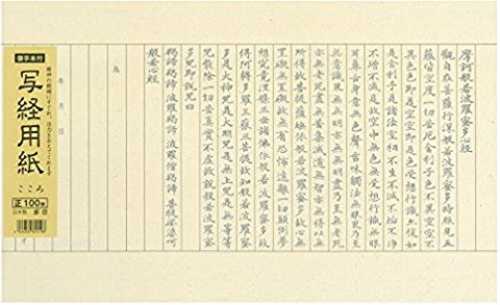 摩訶般若波羅蜜多心経
觀自在菩薩行深般若波羅蜜多時照見五
蘊皆空度一切苦厄舍利子色不異空空不
異色色即是空空即是色受想行識亦復如
是舍利子是諸法空相不生不滅不垢不淨
不增不減是故空中無色無受想行識無眼
耳鼻舌身意無色聲香味觸法無眼界乃至
無意識界無無明亦無無明盡乃至無老死
亦無老死盡無苦集滅道無智亦無得以無
所得故菩提薩埵依般若波羅蜜多故心無
罣礙無罣礙故無有恐怖遠離一切顛倒夢
想究竟涅槃三世諸佛依般若波羅蜜多故
得阿耨多羅三藐三菩提故知般若波羅蜜
多是大神咒是大明咒是無上咒是無等等
咒能除一切苦真實不虛故說般若波羅蜜
多咒即說咒曰
羯諦羯諦 波羅羯諦 波羅僧羯諦 菩提薩婆訶
般若心経
為
年月日
御手本付
写経用紙
こころ
正100枚
日本製